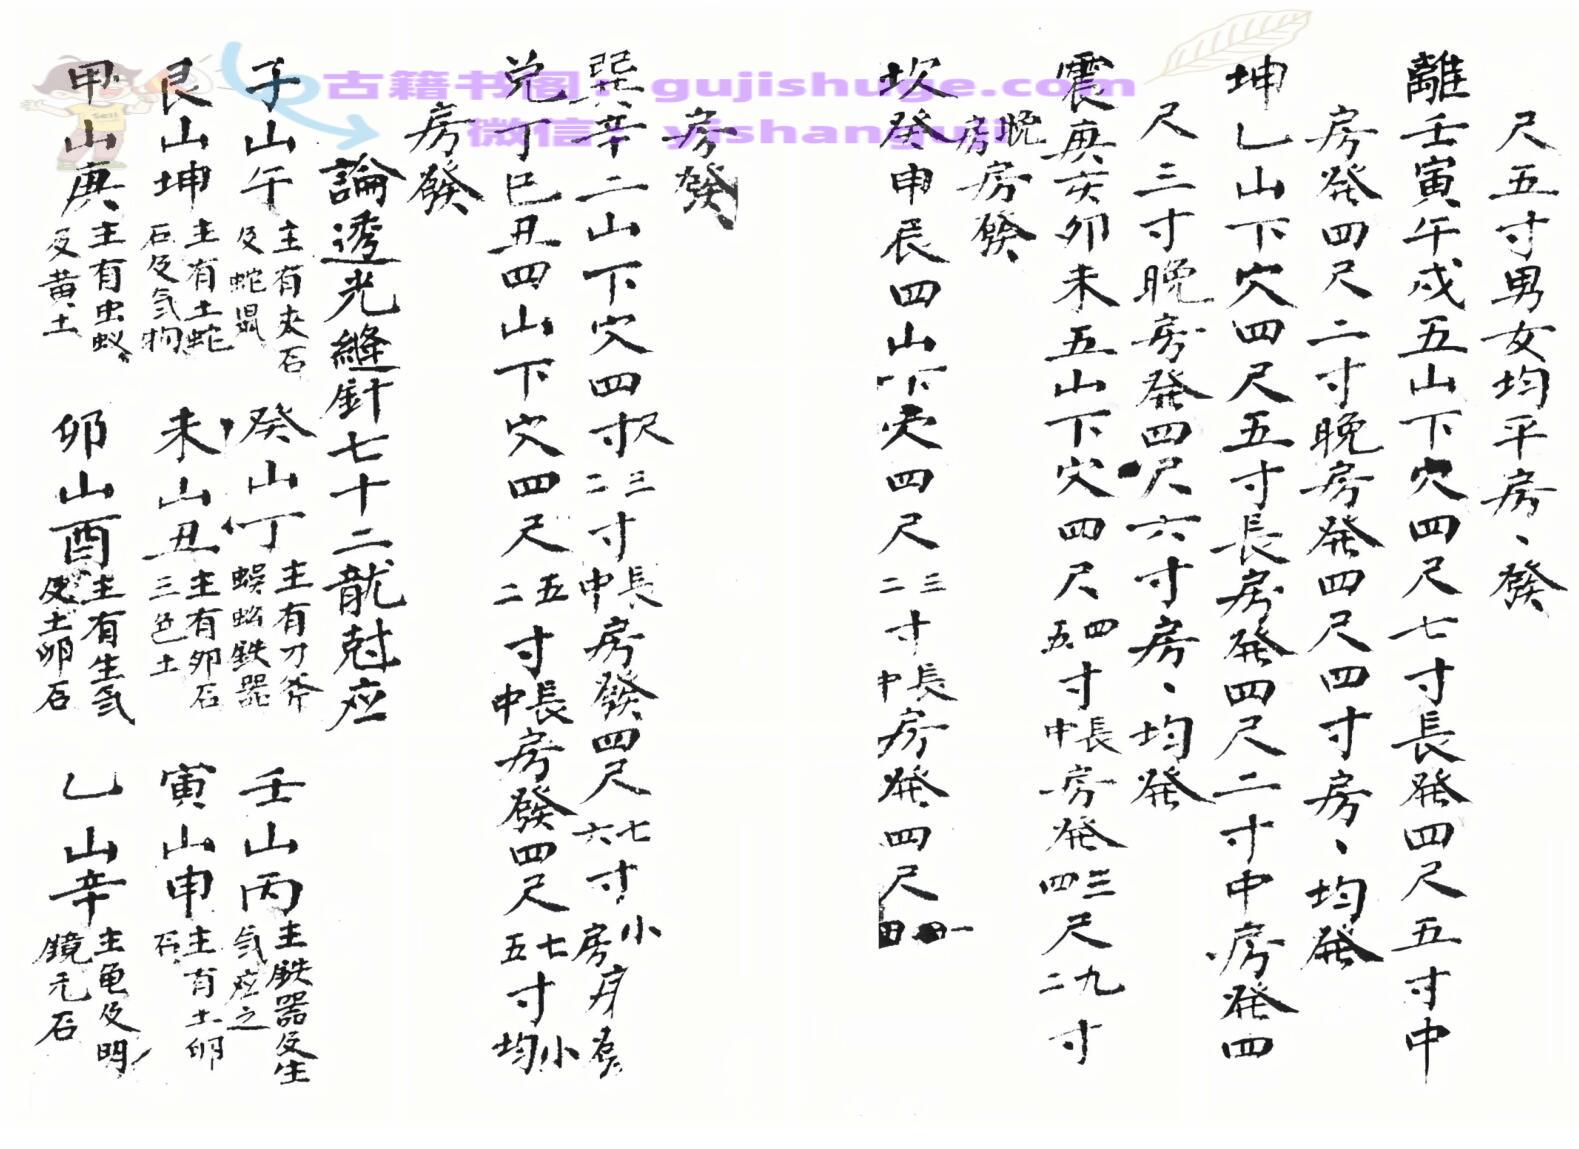 尺五寸男女均平房、發
離壬寅午戌五山下穴四尺七寸長發四尺五寸中
房發四尺二寸晚房發四尺四寸房、均發
坤乙山下穴四尺五寸長房發四尺二寸中房發四
尺三寸晚房發四尺六寸房、均發
震庚亥卯未五山下穴四尺四五寸長中房發三四尺九二寸
晚房房發
坎癸申辰四山下穴四尺三二寸長中房發四尺
房發
巽辛二山下穴四尺寸三二寸長中房發四尺七六寸小房
兌丁巳丑四山下穴四尺五二寸長中房發四尺七五寸小均
房發
論透光縫針七十二龍尅应
子山午主有夾石及蛇鼠 癸山丁主有刀斧蜈蚣鉄器 壬山丙主鉄器及生氣应之
艮山坤主有土蛇石及気物 未山丑主有卵石三色土 寅山申主有土卵石
甲山庚主有虫蚁及黄土 卯山酉主有生気及土卵石 乙山辛主龟及明鏡元石
古籍书阁：gujishuge.com
微信：yishanguji